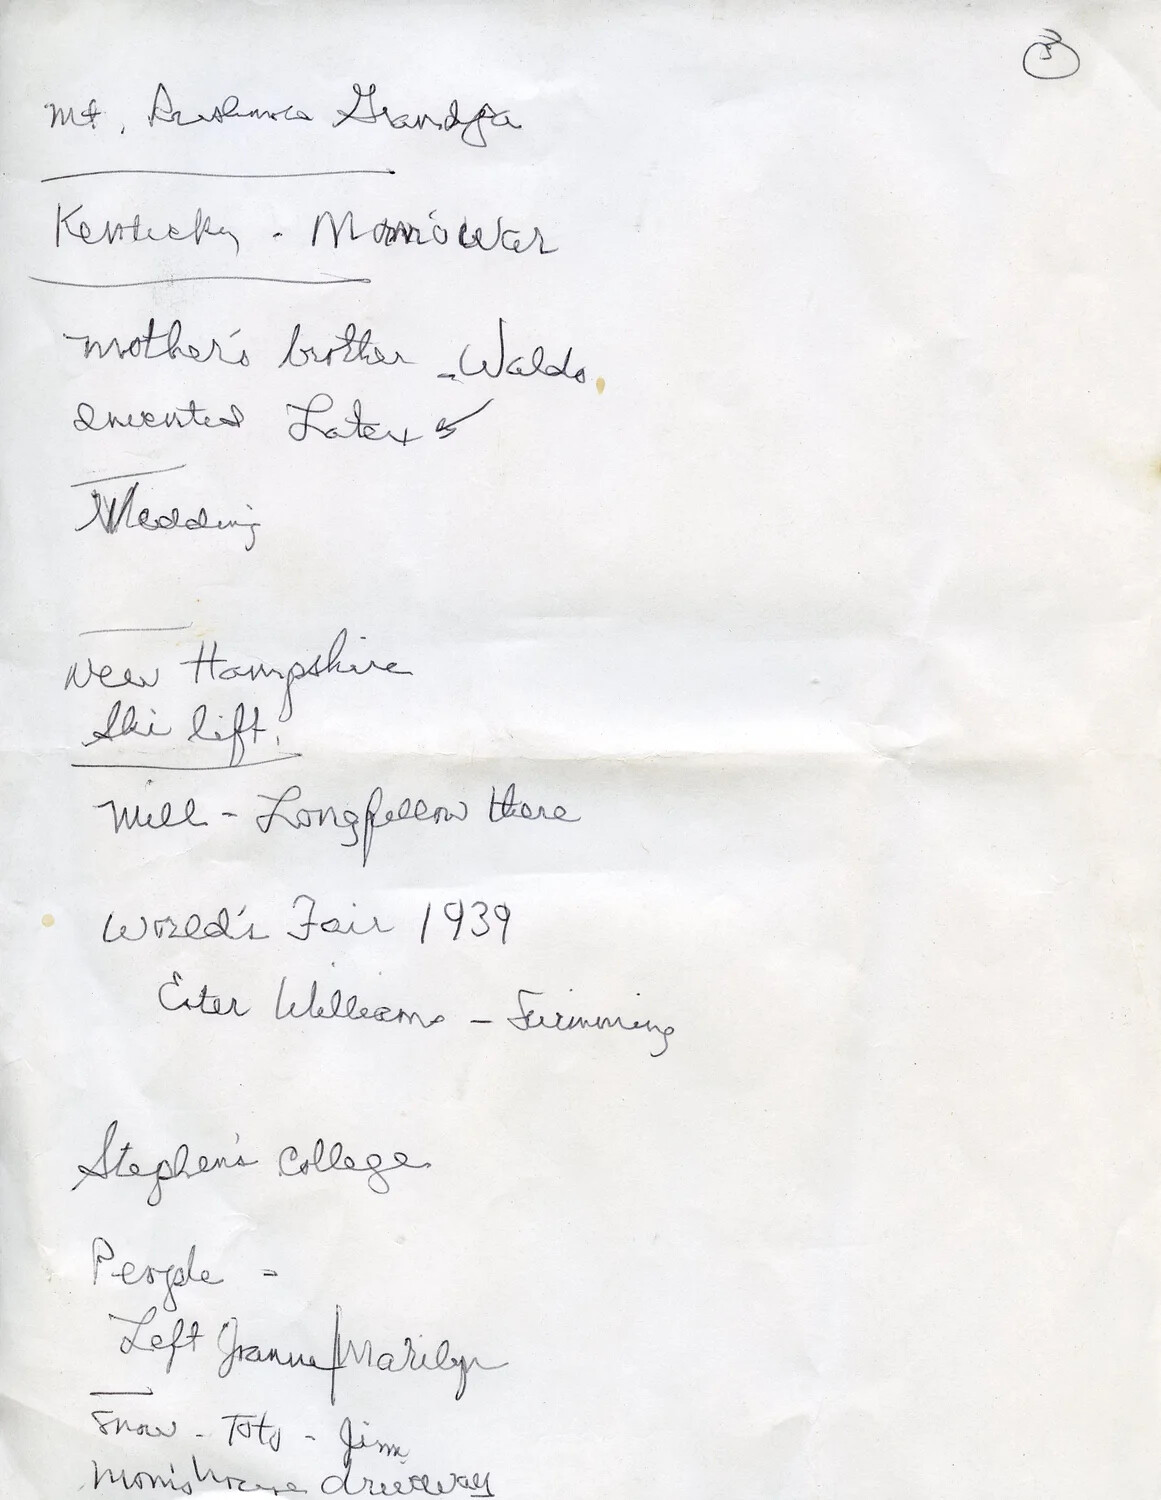 3
Mt. Rushmore Grandpa
Kentucky - Man o' War
Mother's brother - Waldo
invented Latex
Wedding
New Hampshire
Ski lift.
Mill - Longfellow there
World's Fair 1939
Ester Williams - Swimming
Stephen's College
People -
Left Joanne/Marilyn
Snow - Toto - Jim
Mom's house driveway